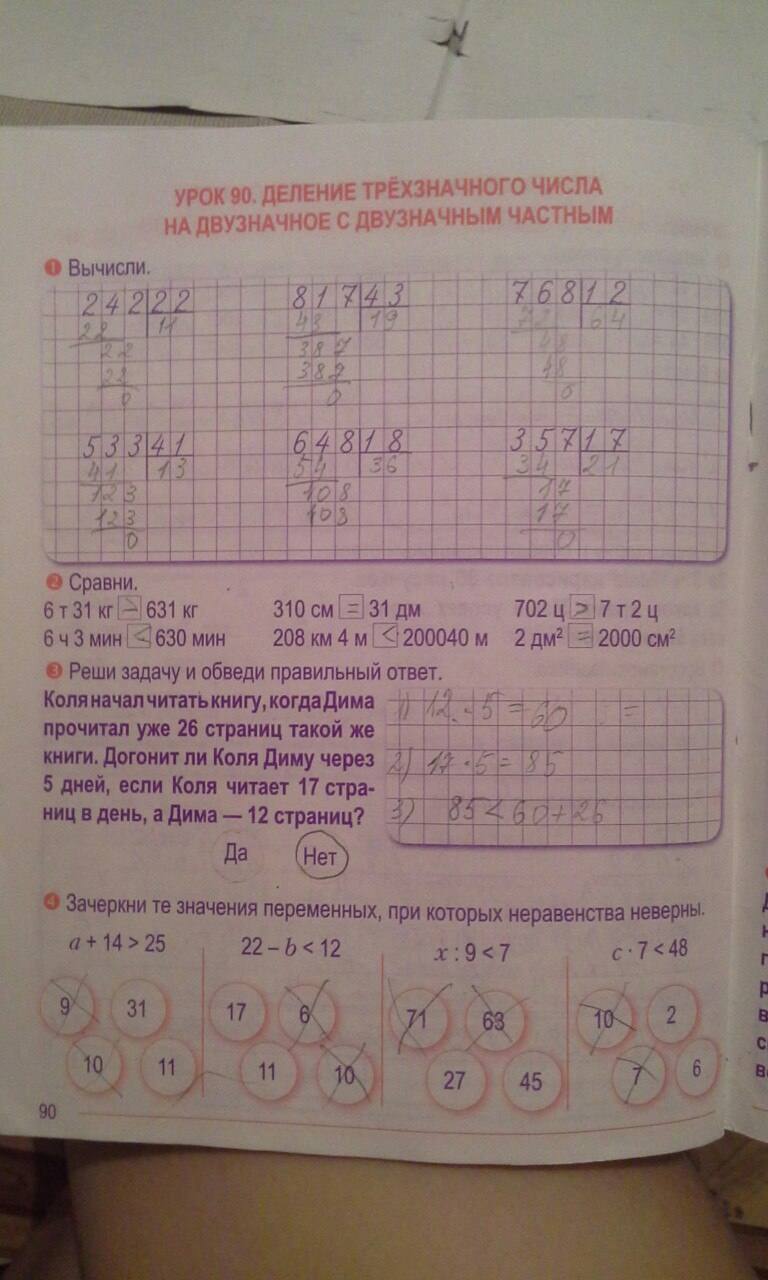 УРОК 90. ДЕЛЕНИЕ ТРЁХЗНАЧНОГО ЧИСЛА
НА ДВУЗНАЧНОЕ С ДВУЗНАЧНЫМ ЧАСТНЫМ
1 Вычисли.
242 22 817 43 768 12
22 11 43 19 72 64
22 387 48
22 387 48
0 0 0
533 41 648 18 357 17
41 13 54 36 34 21
123 108 17
123 108 17
0 0
2 Сравни.
6 т 31 кг > 631 кг 310 см = 31 дм 702 ц > 7 т 2 ц
6 ч 3 мин < 630 мин 208 км 4 м < 200040 м 2 дм² = 2000 см²
3 Реши задачу и обведи правильный ответ.
Коля начал читать книгу, когда Дима
прочитал уже 26 страниц такой же
книги. Догонит ли Коля Диму через
5 дней, если Коля читает 17 стра-
ниц в день, а Дима — 12 страниц?
1) 12 · 5 = 60 =
2) 17 · 5 = 85
3) 85 < 60 + 26
Да Нет
4 Зачеркни те значения переменных, при которых неравенства неверны.
a + 14 > 25 22 – b < 12 x : 9 < 7 c · 7 < 48
9 31 17 6 71 63 10 2
10 11 11 10 27 45 7 6
90